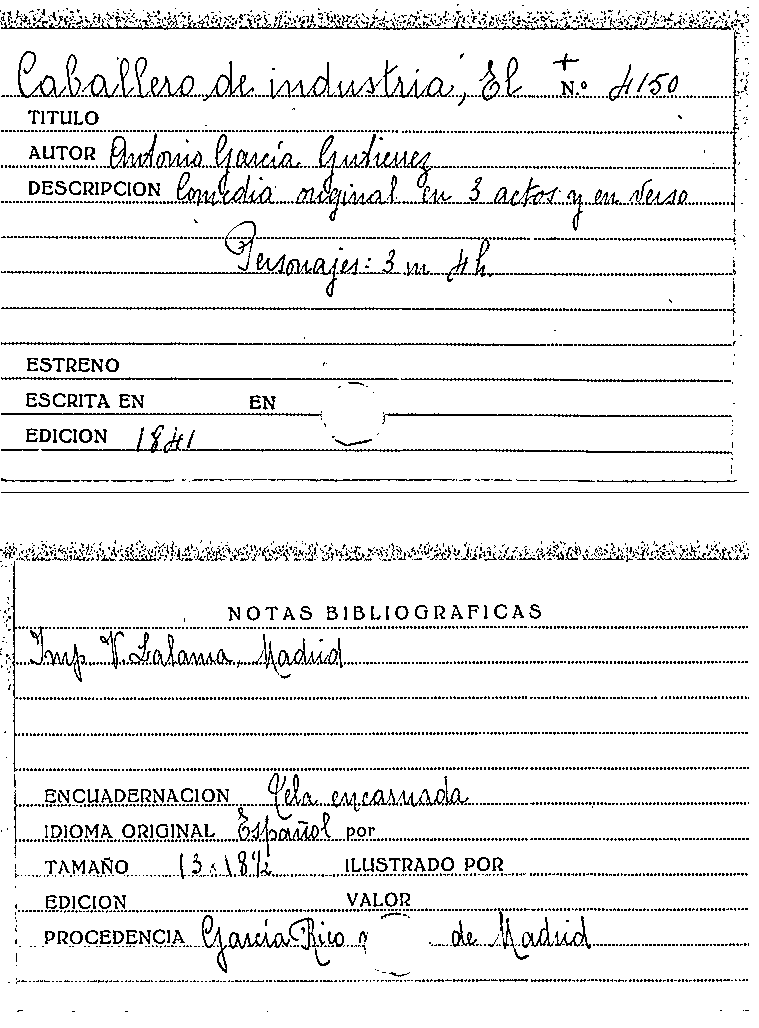 Caballero de industria, El + N.º 4150
TITULO
AUTOR Antonio García Gutierrez
DESCRIPCION Comedia original en 3 actos y en verso
Personajes: 3 m 4 h.
ESTRENO
ESCRITA EN EN
EDICION 1841
NOTAS BIBLIOGRAFICAS
Imp. V. Lalama, Madrid
ENCUADERNACION Tela encarnada
IDIOMA ORIGINAL Español por
TAMAÑO 13 x 18½ ILUSTRADO POR
EDICION VALOR
PROCEDENCIA García Rico de Madrid